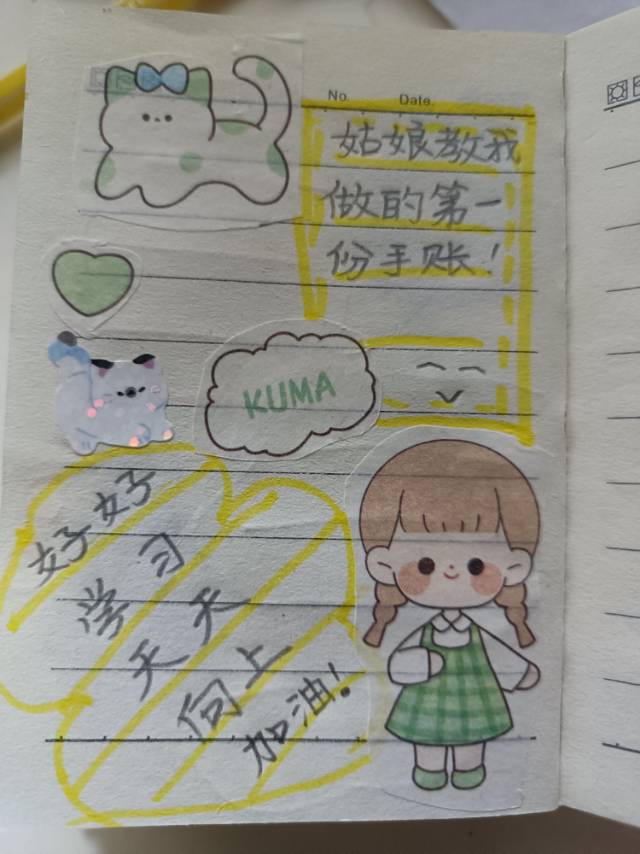 No. Date.
姑娘教我
做的第一
份手账！
KUMA
好好
学习
天天
向上
加油！